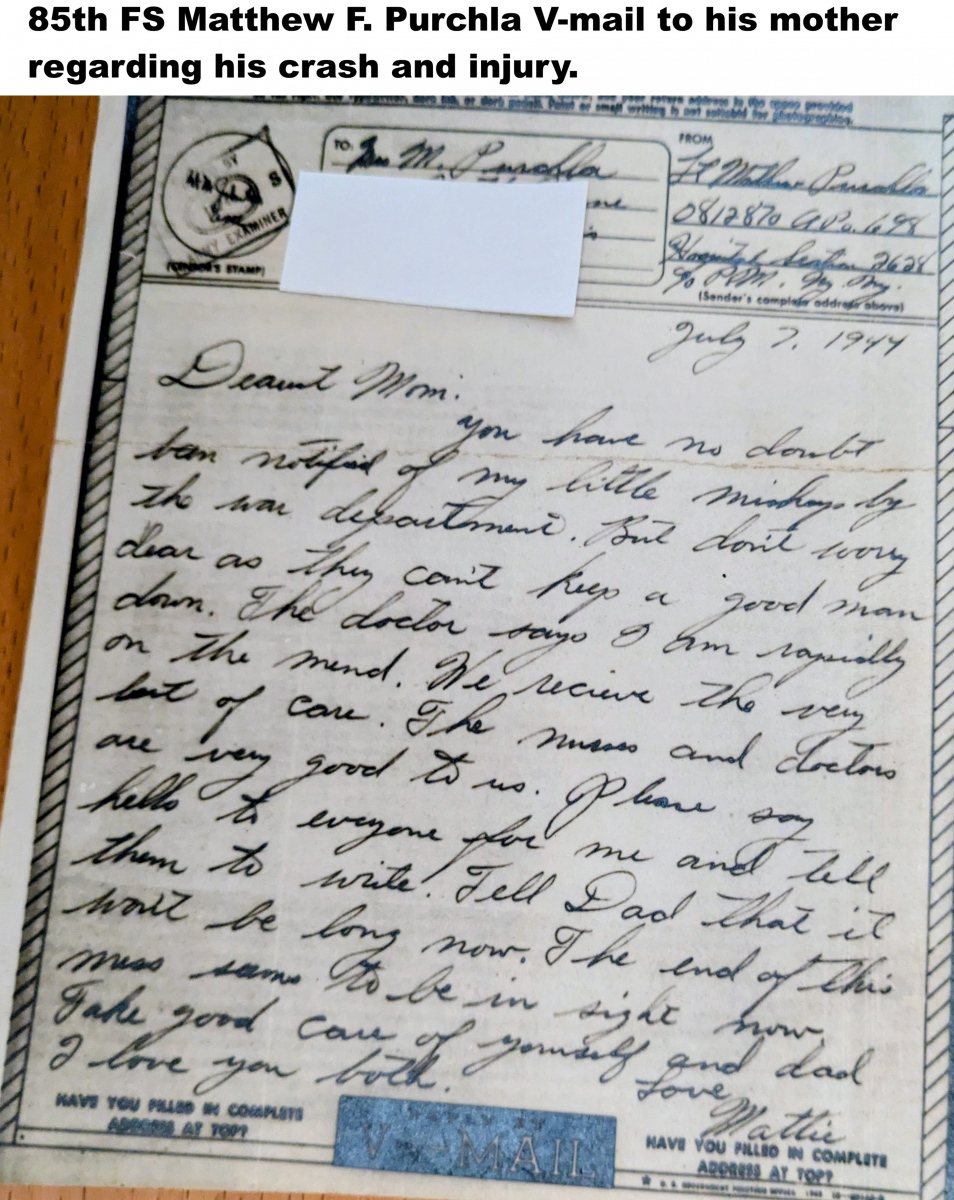 85th FS Matthew F. Purchla V-mail to his mother
regarding his crash and injury.
BY
ARMY EXAMINER
(CENSOR'S STAMP)
TO:
M. Purchla
FROM
Lt Matthew Purchla
0812870 A.P.O. 698
Hospital Section 2628
c/o P.M. Ny. Ny.
(Sender's complete address above)
July 7, 1944
Dearest Mom.
you have no doubt
been notified of my little mishap by
the war department. But don't worry
dear as they can't keep a good man
down. The doctor says I am rapidly
on the mend. We recieve the very
best of care. The nurses and doctors
are very good to us. Please say
hello to everyone for me and tell
them to write. Tell Dad that it
won't be long now. The end of this
mess seems to be in sight now.
Take good care of yourself and dad
I love you both.
Love
Mattie
HAVE YOU FILLED IN COMPLETE
ADDRESS AT TOP?
V-MAIL
HAVE YOU FILLED IN COMPLETE
ADDRESS AT TOP?